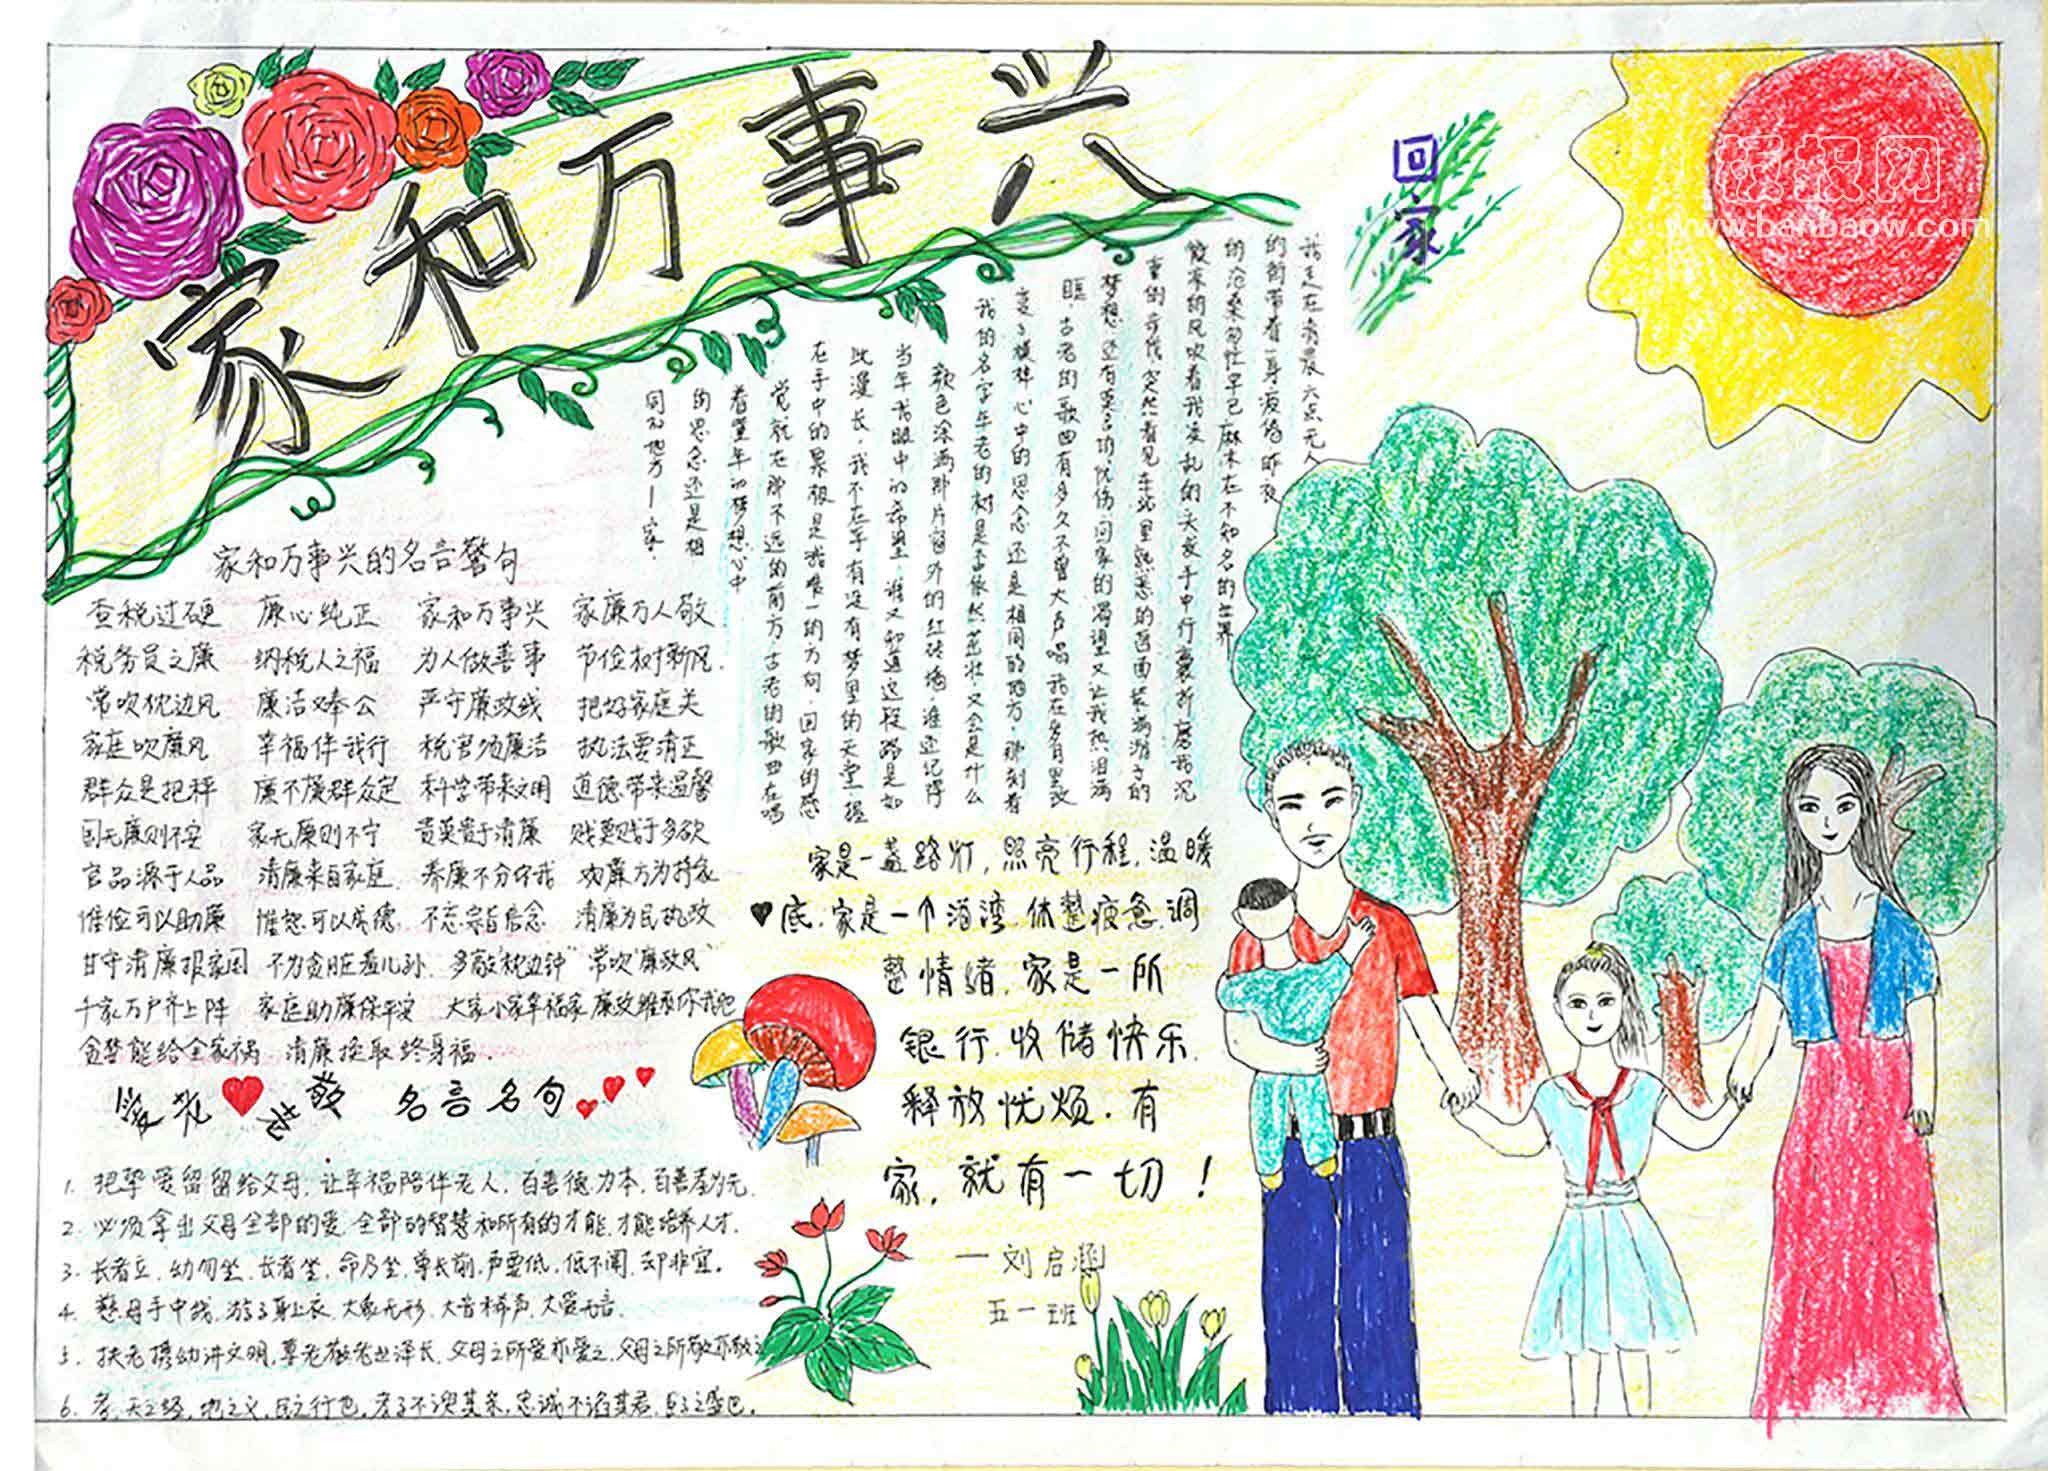 家和万事兴
版报网
www.banbaow.com
回家
我走在清晨六点无人
的街带着一身疲倦昨夜
的沧桑匆忙早已麻木在不知名的世界
微凉的风吹着我凌乱的头发手中行囊折磨我沉
重的步伐突然看见车站里熟悉的画面装满游子的
梦想还有莫名的忧伤回家的渴望又让我热泪满
眶.古老的歌曲有多久不曾大声唱我在岁月里改
变了模样心中的思念还是相同的地方.那刻着
我的名字年老的树是否依然茁壮又会是什么
颜色涂满那片窗外的红砖墙谁还记得
当年我眼中的希望.谁又知道这段路是如
此漫长,我不在乎有没有梦里的天堂握
在手中的票根是我唯一的方向.回家的感
觉就在那不远的前方古老的歌曲在唱
着童年的梦想心中
的思念还是相
同的地方—家.
家和万事兴的名言警句
查税过硬 廉心纯正 家和万事兴 家廉万人敬
税务员之廉 纳税人之福 为人做善事 节俭树新风.
常吹枕边风 廉洁奉公 严守廉政线 把好家庭关
家庭吹廉风 幸福伴我行 税官须廉洁 执法要清正
群众是把秤 廉不廉群众定 科学带来文明 道德带来温馨
国无廉则不安 家无廉则不宁 贵莫贵于清廉 贱莫贱于多欲
官品源于人品 清廉来自家庭. 养廉不分你我 劝廉方为持家
惟俭可以助廉 惟恕可以成德. 不忘宗旨信念 清廉为民执政
甘守清廉报家国 不为贪赃羞儿孙. 多敲"枕边钟" 常吹"廉政风"
千家万户齐上阵 家庭助廉保平安 大家小家幸福家 廉政维系你我他
贪婪能给全家祸 清廉换取终身福.
爱老 敬老 名言名句
1. 把挚爱留留给父母,让幸福陪伴老人,百善德为本,百善孝为元.
2. 必须拿出父母全部的爱.全部的智慧和所有的才能,才能培养人才.
3. 长者立,幼勿坐,长者坐,命乃坐,尊长前,声要低,低不闻,却非宜.
4. 慈母手中线,游子身上衣.大象无形,大音稀声,大爱无言.
5. 扶老携幼讲文明,尊老敬老出泽长,父母之所爱亦爱之,父母之所敬亦敬之
6. 孝,天之经,地之义,民之行也,孝子不谀其亲,忠诚不谄其君,臣子之盛也.
家是一盏路灯,照亮行程,温暖
底.家是一个港湾.休整疲惫.调
整情绪.家是一所
银行.收储快乐.
释放忧烦.有
家,就有一切!
—刘启涵
五一班